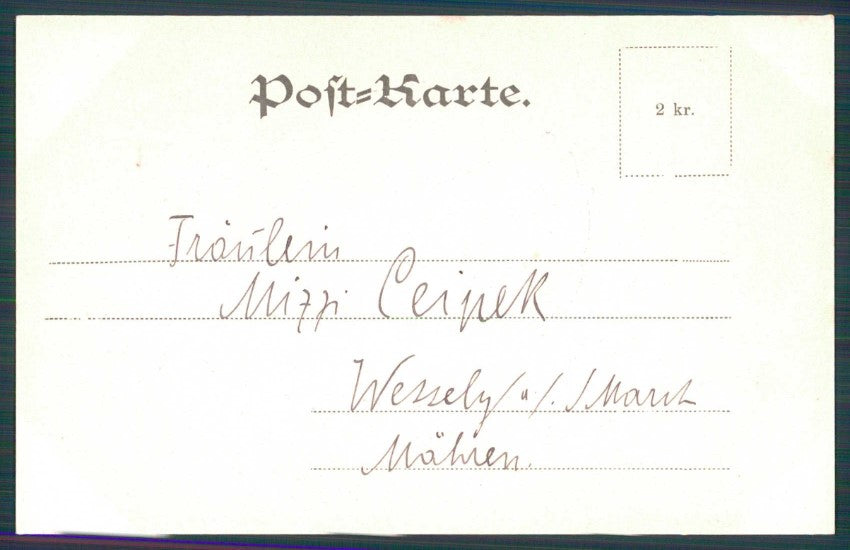 Post-Karte.
2 kr.
Fräulein
Mizzi Ceipek
Wessely a/. March
Mähren.